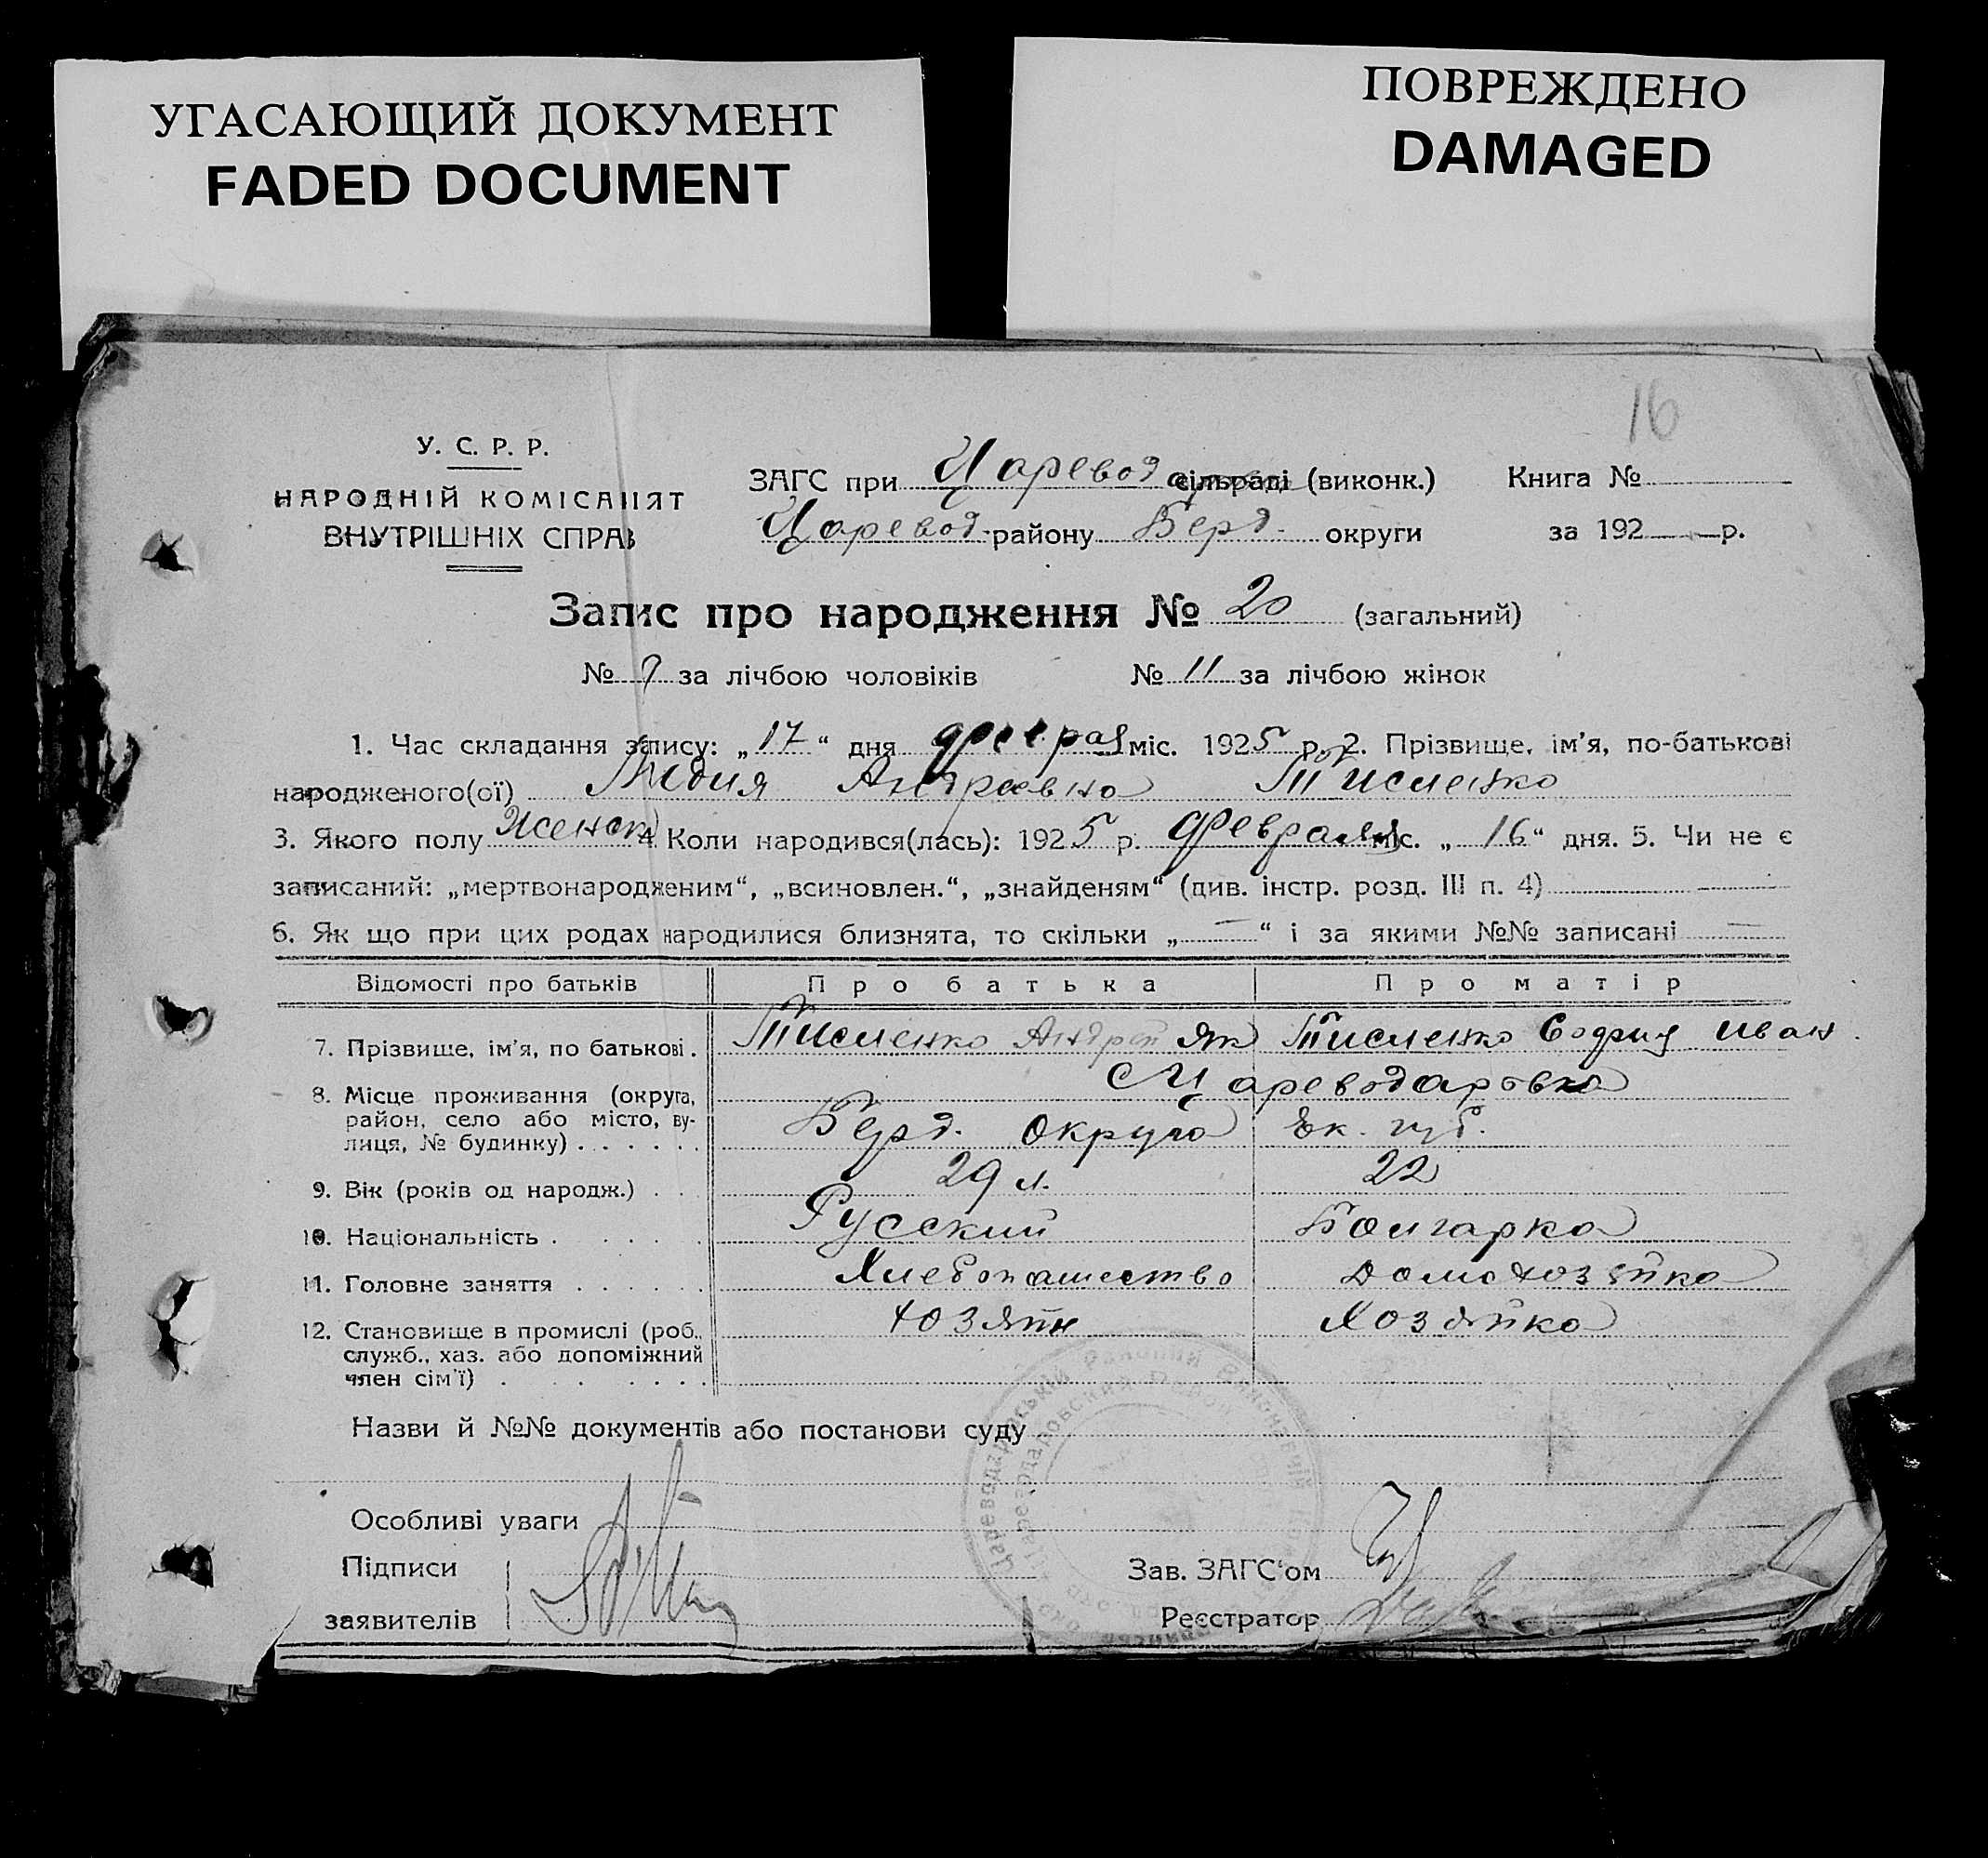 УГАСАЮЩИЙ ДОКУМЕНТ
FADED DOCUMENT
ПОВРЕЖДЕНО
DAMAGED
16
У. С. Р. Р.
НАРОДНІЙ КОМІСАРІЯТ
ВНУТРІШНІХ СПРАВ
ЗАГС при Царевод сільраді (виконк.) Книга №
Царевод. району Берд. округи за 192 р.
Запис про народження № 20 (загальний)
№ 9 за лічбою чоловіків № 11 за лічбою жінок
1. Час складання запису: „17“ дня февраля міс. 1925 р. 2. Прізвище, ім’я, по-батькові
народженого(ої) Лидия Андреевна Тисленко
3. Якого полу Женск 4 Коли народився(лась): 1925 р. Февраля міс. „16“ дня. 5. Чи не є
записаний: „мертвонародженим“, „всиновлен.“, „знайденям“ (див. інстр. розд. III п. 4)
6. Як що при цих родах народилися близнята, то скільки „—“ і за якими №№ записані —
Відомості про батьків Про батька Про матір
7. Прізвище, ім’я, по батькові. Тисленко Андрей Як Тисленко София Иван.
8. Місце проживання (округа, с Цареводаровка
район, село або місто, ву-
лиця, № будинку) Берд. Округа Ек. губ.
9. Вік (років од народж.) 29 л. 22
10. Національність Русский Болгарка
11. Головне заняття Хлебопашество Домохозяйка
12. Становище в промислі (роб., хозяин Хозяйка
служб., хаз. або допоміжний
член сім’ї)
Назви й №№ документів або постанови суду
Особливі уваги
Підписи
заявителів
Зав. ЗАГС‘ом
Реєстратор